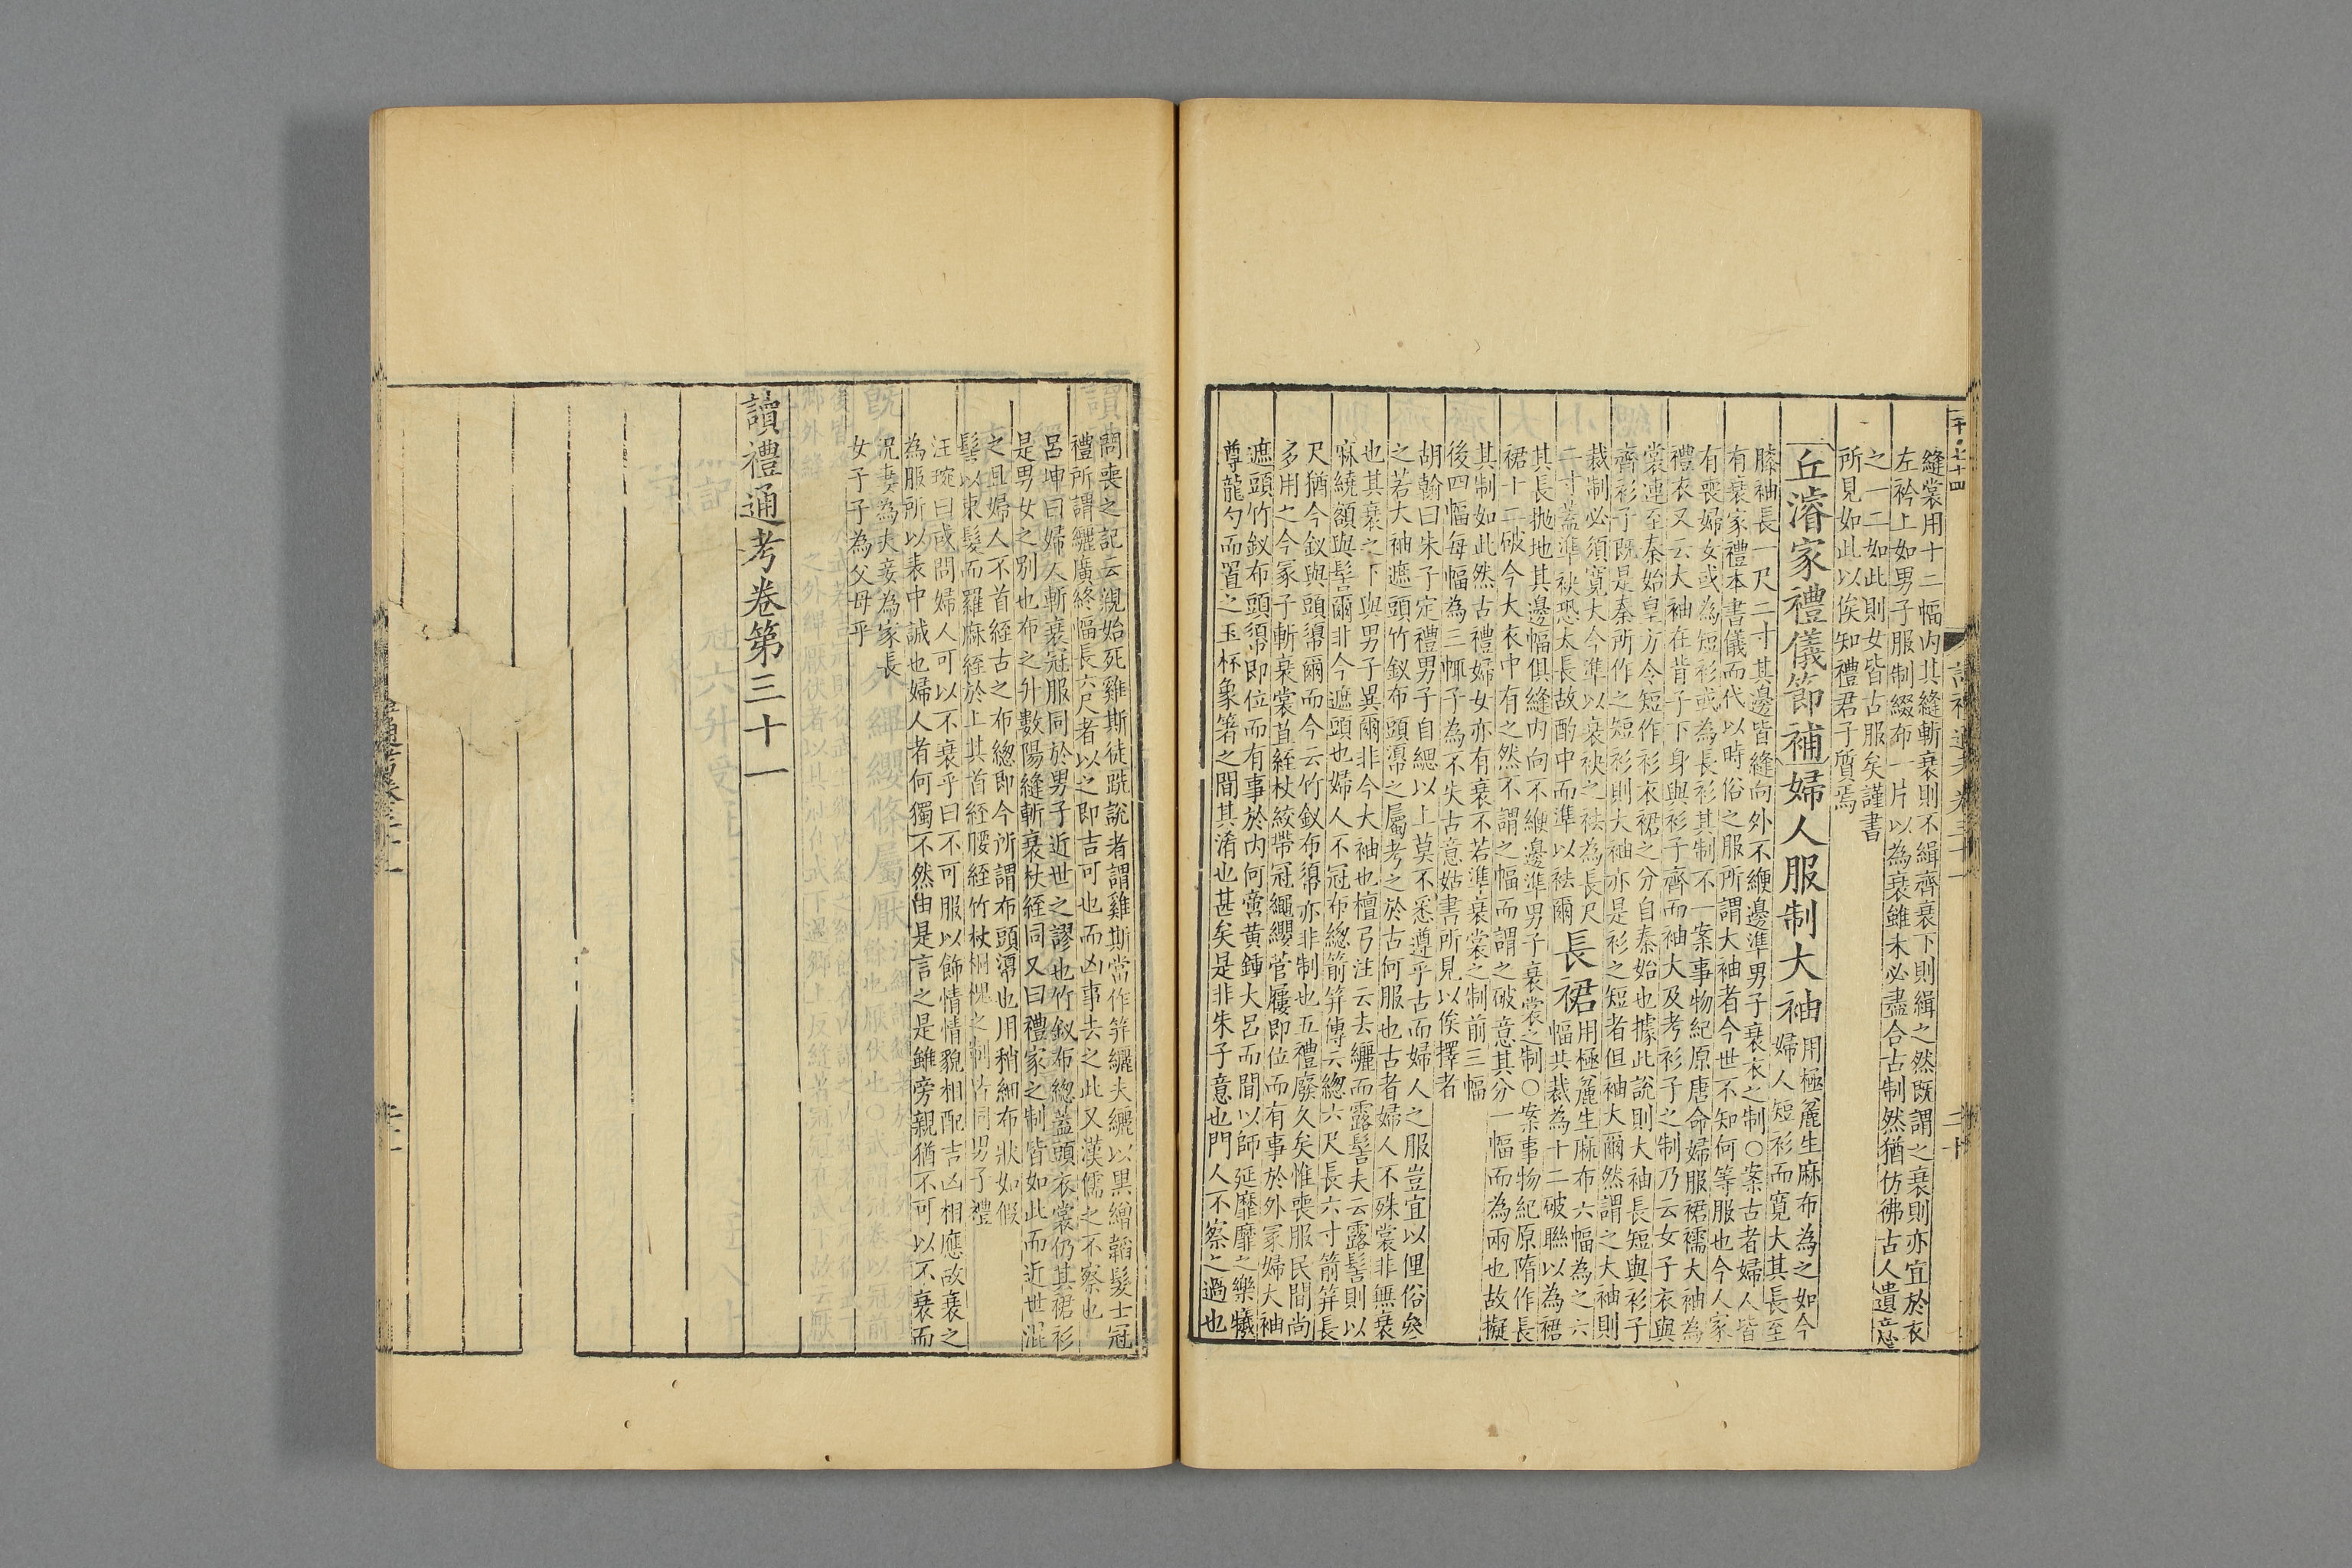 縫裳用十二幅内其縫斬衰則不緝齊衰下則緝之然既謂之衰則亦宜於衣
左衿上如男子服制綴布一片以為衰雖未必盡合古制然猶彷彿古人遺意
之一二如此則女皆古服矣謹書
所見如此以俟知禮君子質焉
丘濬家禮儀節補婦人服制大袖
用極麄生麻布為之如今
婦人短衫而寬大其長至
膝袖長一尺二寸其邊皆縫向外不緶邊準男子衰衣之制○案古者婦人皆
有衰家禮本書儀而代以時俗之服所謂大袖者今世不知何等服也今人家
有喪婦女或為短衫或為長衫其制不一案事物紀原唐命婦服裙襦大袖為
禮衣又云大袖在背子下身與衫子齊而袖大及考衫子之制乃云女子衣與
裳連至秦始皇方令短作衫衣裙之分自秦始也據此說則大袖長短與衫子
齊衫子既是秦所作之短衫則大袖亦是衫之短者但袖大爾然謂之大袖則
裁制必須寬大今準以衰袂之袪為長尺
二寸蓋準袂恐太長故酌中而準以袪爾
長裙
用極麄生麻布六幅為之六
幅共裁為十二破聯以為裙
其長拖地其邊幅俱縫内向不緶邊準男子衰裳之制○案事物紀原隋作長
裙十二破今大衣中有之然不謂之幅而謂之破意其分一幅而為兩也故擬
其制如此然古禮婦女亦有衰不若準衰裳之制前三幅
後四幅每幅為三㡇子為不失古意姑書所見以俟擇者
胡翰曰朱子定禮男子自緦以上莫不悉遵乎古而婦人之服豈宜以俚俗矣
之若大袖遮頭竹釵布頭𢄼之屬考之於古何服也古者婦人不殊裳非無衰
也其衰之下與男子異爾非今大袖也檀弓注云去纚而露髻夫云露髻則以
麻繞額與髻爾非今遮頭也婦人不冠布總箭笄傳云總六尺長六寸箭笄長
尺猶今釵與頭𢄼爾而今云竹釵布𢄼亦非制也五禮廢久矣惟喪服民間尚
多用之今冢子斬衰裳苴絰杖絞帶冠繩纓菅屨即位而有事於外冢婦大袖
遮頭竹釵布頭𢄼即位而有事於内何啻黄鍾大呂而間以師延靡靡之樂犧
尊龍勺而置之玉杯象箸之間其淆也甚矣是非朱子意也門人不察之過也
問喪之記云親始死雞斯徒跣說者謂雞斯當作笄纚夫纚以黒繒韜髮士冠
禮所謂纚廣終幅長六尺者以之即吉可也而凶事去之此又漢儒之不察也
呂坤曰婦人斬衰冠服同於男子近世之謬也竹釵布總蓋頭衣裳仍其裙衫
是男女之別也布之升數陽縫斬衰杖絰同又曰禮家之制皆如此而近世混
之且婦人不首絰古之布總即今所謂布頭𢄼也用稍細布狀如假
髻以束髮而羅麻絰於上其首絰腰絰竹杖桐棍之制皆同男子禮
汪琬曰或問婦人可以不衰乎曰不可服以飾情情貌相配吉凶相應故衰之
為服所以表中誠也婦人者何獨不然由是言之是雖旁親猶不可以不衰而
況妻為夫妾為家長
女子子為父母乎
讀禮通考卷第三十一